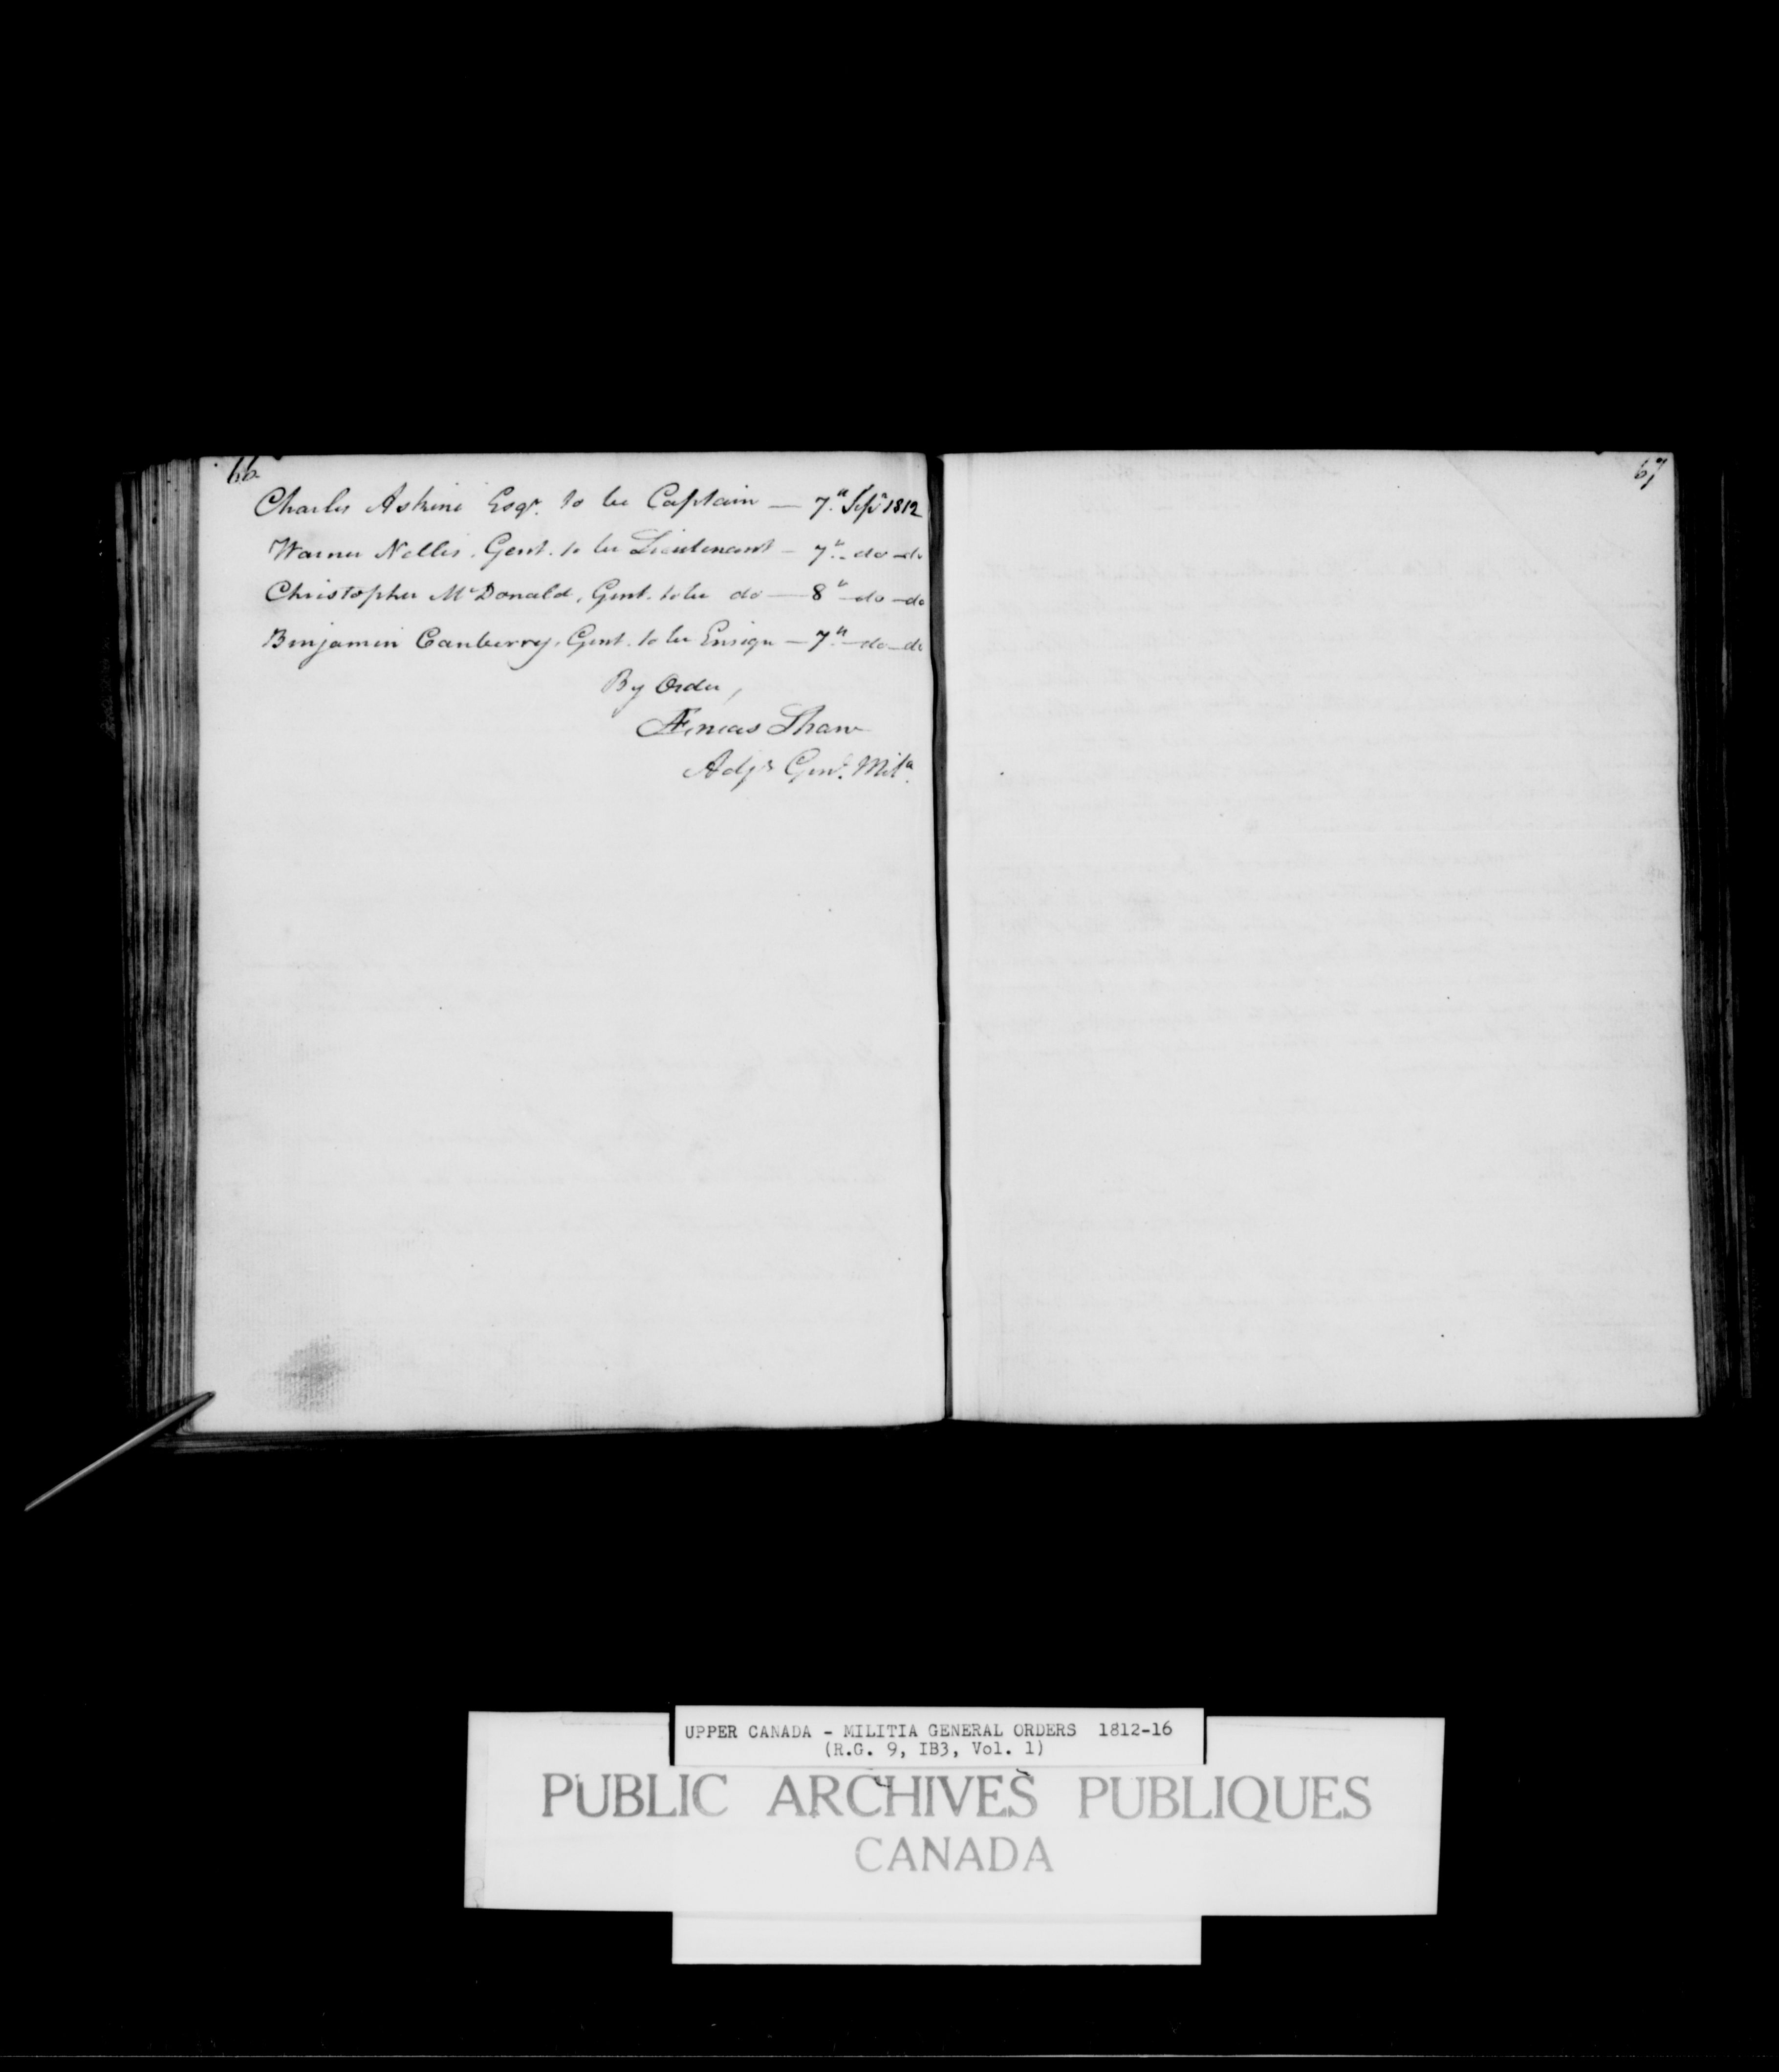 66
Charles Askine Esqr. to be Captain — 7th Sepr 1812
Warner Nelles, Gent. to be Lieutenant — 7th — do — do
Christopher McDonald, Gent. to be do — 8th — do — do
Benjamin Canberry, Gent. to be Ensign — 7th — do — do
By Order,
Æneas Shaw
Adjt Genl. Mila.
67
UPPER CANADA - MILITIA GENERAL ORDERS 1812-16
(R.G. 9, IB3, Vol. 1)
PUBLIC ARCHIVES PUBLIQUES
CANADA